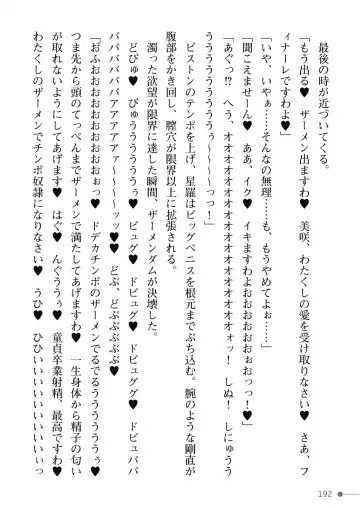 最後の時が近づいてくる。
「もう出る♥　ザーメン出ますわ♥　美咲、わたくしの愛を受け取りなさい♥　さあ、フ
ィナーレですわよ♥」
「いや、いやぁ……そんなの無理……も、もうやめてよぉ……」
「聞こえませーん♥　ああ、イク♥　イキますわよおおおおおぉぉおっっ！♥」
「あぐっ!?　へう、オオオオオオオオオオオオオオオオォッ！　しぬ！　しにゅうう
うううううううぅぅ～～～～っっ！」
ピストンのテンポを上げ、星羅はビッグペニスを根元までぶち込む。腕のような剛直が
腹部をかき回し、膣穴が限界以上に拡張される。
濁った欲望が限界に達した瞬間、ザーメンダムが決壊した。
どぴゅ♥　ぴゅううううぅぅ♥　ビュググ♥　ドビュググ♥　ドビュググ♥　ドビュババ
ババババババアアアアァァ～～～ッッ♥♥　どぷ、どぷぷぷぷぷ♥
「おふぉおおおおおおおおおぉっ♥　ドデカチンポのザーメンでるでるうううううぅ♥
つま先から頭のてっぺんまでザーメンで満たしてあげますわ♥　一生身体から精子の匂い
が取れないようにしてあげます♥　はぐ♥　んぐううぅ♥　童貞卒業射精、最高ですわ♥
わたくしのザーメンでチンポ奴隷になりなさい♥　うひ♥　ひひいいいいいいいいいぃっ
192